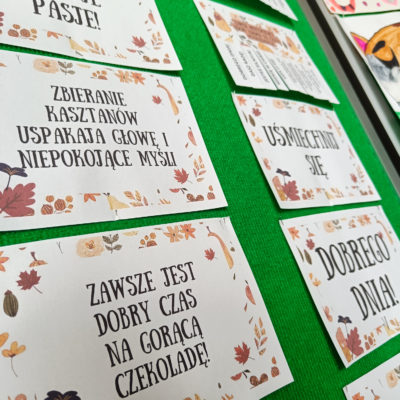 PASJE!
ZBIERANIE
KASZTANÓW
USPAKAJA GŁOWĘ I
NIEPOKOJĄCE MYŚLI
ZAWSZE JEST
DOBRY CZAS
NA GORĄCĄ
CZEKOLADĘ!
UŚMIECHNIJ
SIĘ
DOBREGO
DNIA!